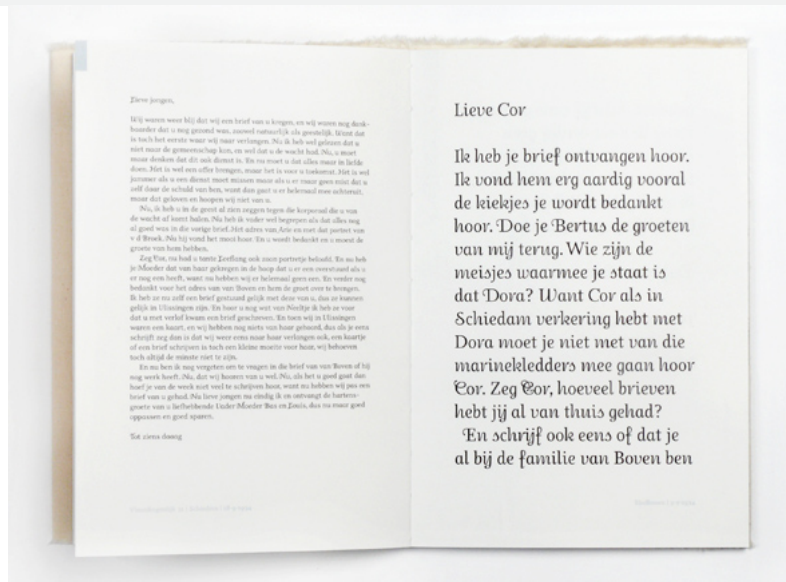 Lieve jongen,
Wij waren weer blij dat wij een brief van u kregen, en wij waren nog dank-
baarder dat u nog gezond was, zoowel natuurlijk als geestelijk. Want dat
is toch het eerste waar wij naar verlangen. Nu ik heb wel gelezen dat u
niet naar de gemeenschap kon, en wel dat u de wacht had. Nu, u moet
maar denken dat dit ook dienst is. En nu moet u dat alles maar in liefde
doen. Het is wel een offer brengen, maar het is voor u toekomst. Het is wel
jammer als u een dienst moet missen maar als u er maar geen mist dat u
zelf daar de schuld van ben, want dan gaat u er helemaal mee achteruit,
maar dat geloven en hoopen wij niet van u.
Nu, ik heb u in de geest al zien zeggen tegen die korporaal die u van
de wacht af komt halen. Nu heb ik vader wel begrepen als dat alles nog
al goed was in die vorige brief. Het adres van Arie en met dat portret van
v d Broek. Nu hij vond het mooi hoor. En u wordt bedankt en u moest de
groete van hem hebben.
Zeg Cor, nu had u tante Leeflang ook zoon portretje beloofd. En nu heb
je Moeder dat van haar gekregen in de hoop dat u er een overstuurd als u
er nog een heeft, nu hebben wij er helemaal geen een. En verder nog
bedankt voor het adres van van Boven en hem de groet over te brengen.
Ik heb ze nu zelf een brief gestuurd gelijk met deze van u, dus ze kunnen
gelijk in Vlissingen zijn. En hoor u nog wat van Neeltje ik heb ze voor
dat u met verlof kwam een brief geschreven. En toen wij in Vlissingen
waren een kaart, en wij hebben nog niets van haar gehoord, dus als je eens
schrijft zeg dan is dat wij weer eens naar haar verlangen ook, een kaartje
of een brief schrijven is toch een kleine moeite voor haar, wij behoeven
toch altijd de minste niet te zijn.
En nu ben ik nog vergeten om te vragen in die brief van van Boven of hij
nog werk heeft. Nu, dat wij hooren van u wel. Nu, als het u goed gaat dan
hoef je van de week niet veel te schrijven hoor, want nu hebben wij pas een
brief van u gehad. Nu lieve jongen nu eindig ik en ontvangt de hartens-
groete van u liefhebbende Vader Moeder Bus en Jansis, dus nu maar goed
oppassen en goed sparen.
Tot ziens daaag
Lieve Cor
Ik heb je brief ontvangen hoor.
Ik vond hem erg aardig vooral
de kiekjes je wordt bedankt
hoor. Doe je Bertus de groeten
van mij terug. Wie zijn de
meisjes waarmee je staat is
dat Dora? Want Cor als in
Schiedam verkering hebt met
Dora moet je niet met van die
marinekledders mee gaan hoor
Cor. Zeg Cor, hoeveel brieven
hebt jij al van thuis gehad?
En schrijf ook eens of dat je
al bij de familie van Boven ben